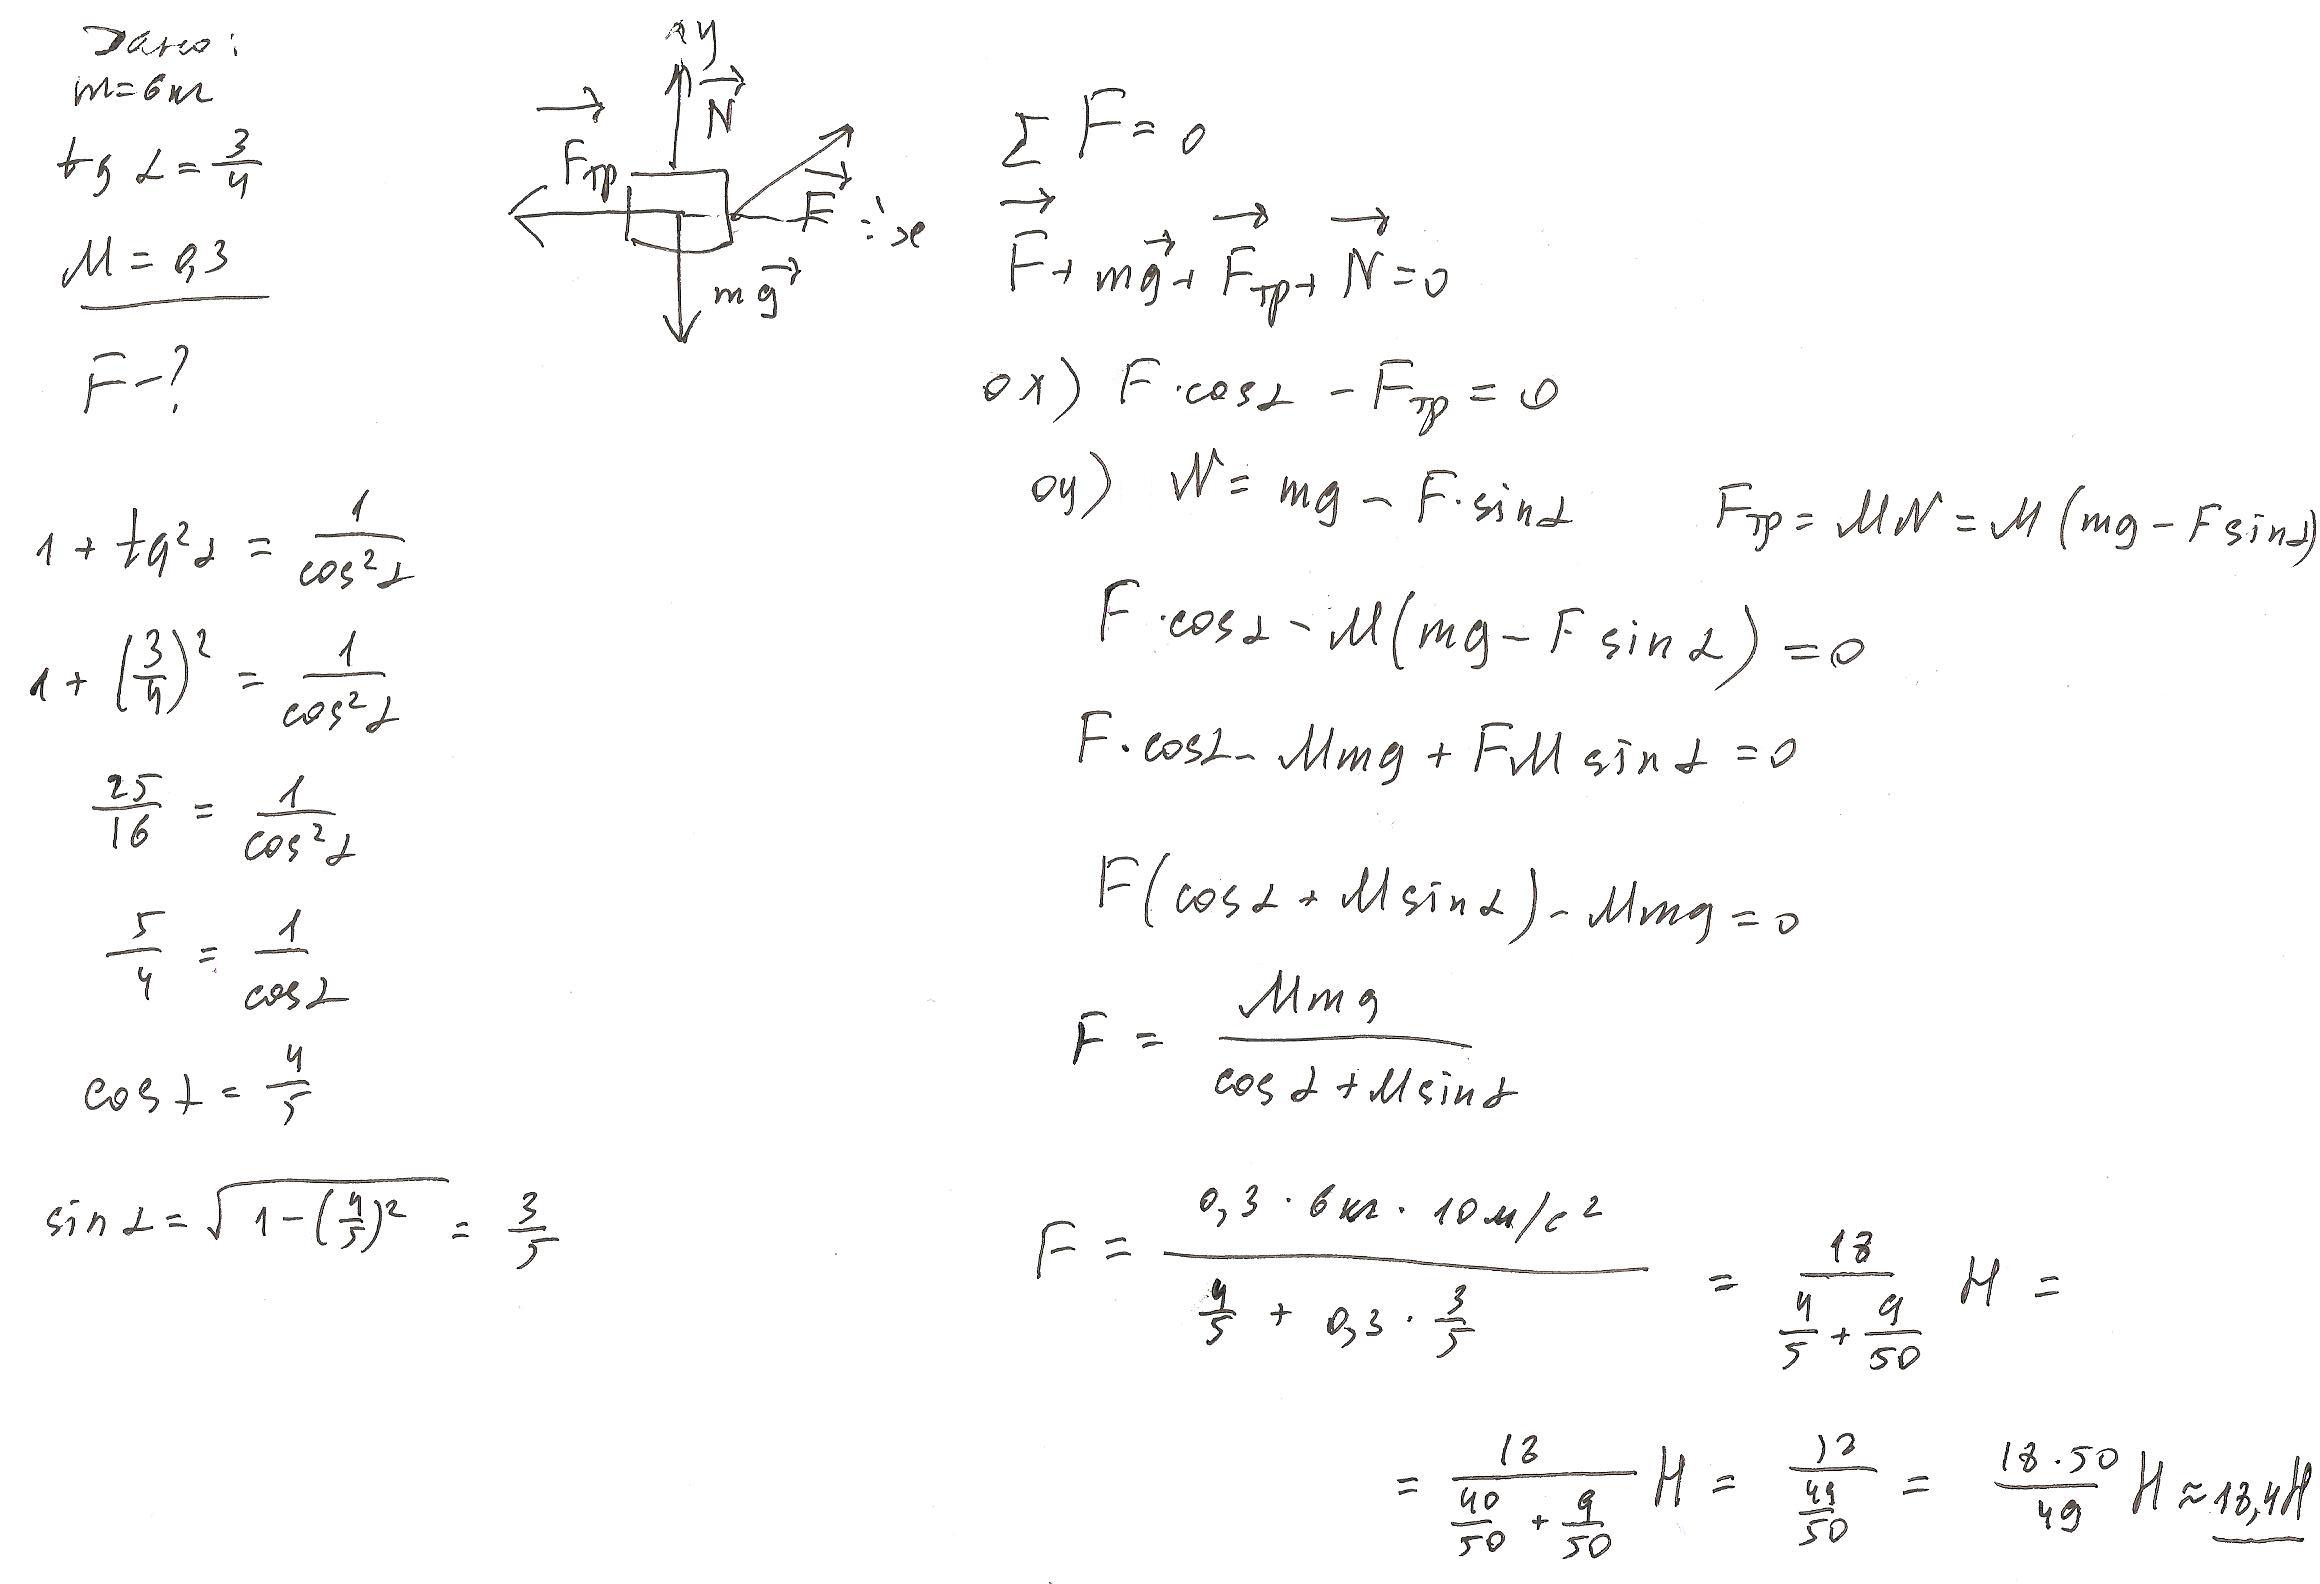 Дано:
m=6кг
tg α = 3/4
μ = 0,3
F-?
y
N
Fтр
F
x
mg
Σ F = 0
F + mg + Fтр + N = 0
ox) F·cosα - Fтр = 0
oy) N = mg - F·sinα
Fтр = μN = μ(mg - F sinα)
F·cosα - μ(mg - F sinα) = 0
F·cosα - μmg + Fμ sinα = 0
F(cosα + μ sinα) - μmg = 0
F = μmg / (cosα + μ sinα)
F = (0,3 · 6кг · 10м/с²) / (4/5 + 0,3 · 3/5) = 18 / (4/5 + 9/50) Н =
= 18 / (40/50 + 9/50) Н = 18 / (49/50) = 18·50 / 49 Н ≈ 18,4Н
1 + tg²α = 1 / cos²α
1 + (3/4)² = 1 / cos²α
25/16 = 1 / cos²α
5/4 = 1 / cosα
cosα = 4/5
sinα = √(1-(4/5)²) = 3/5